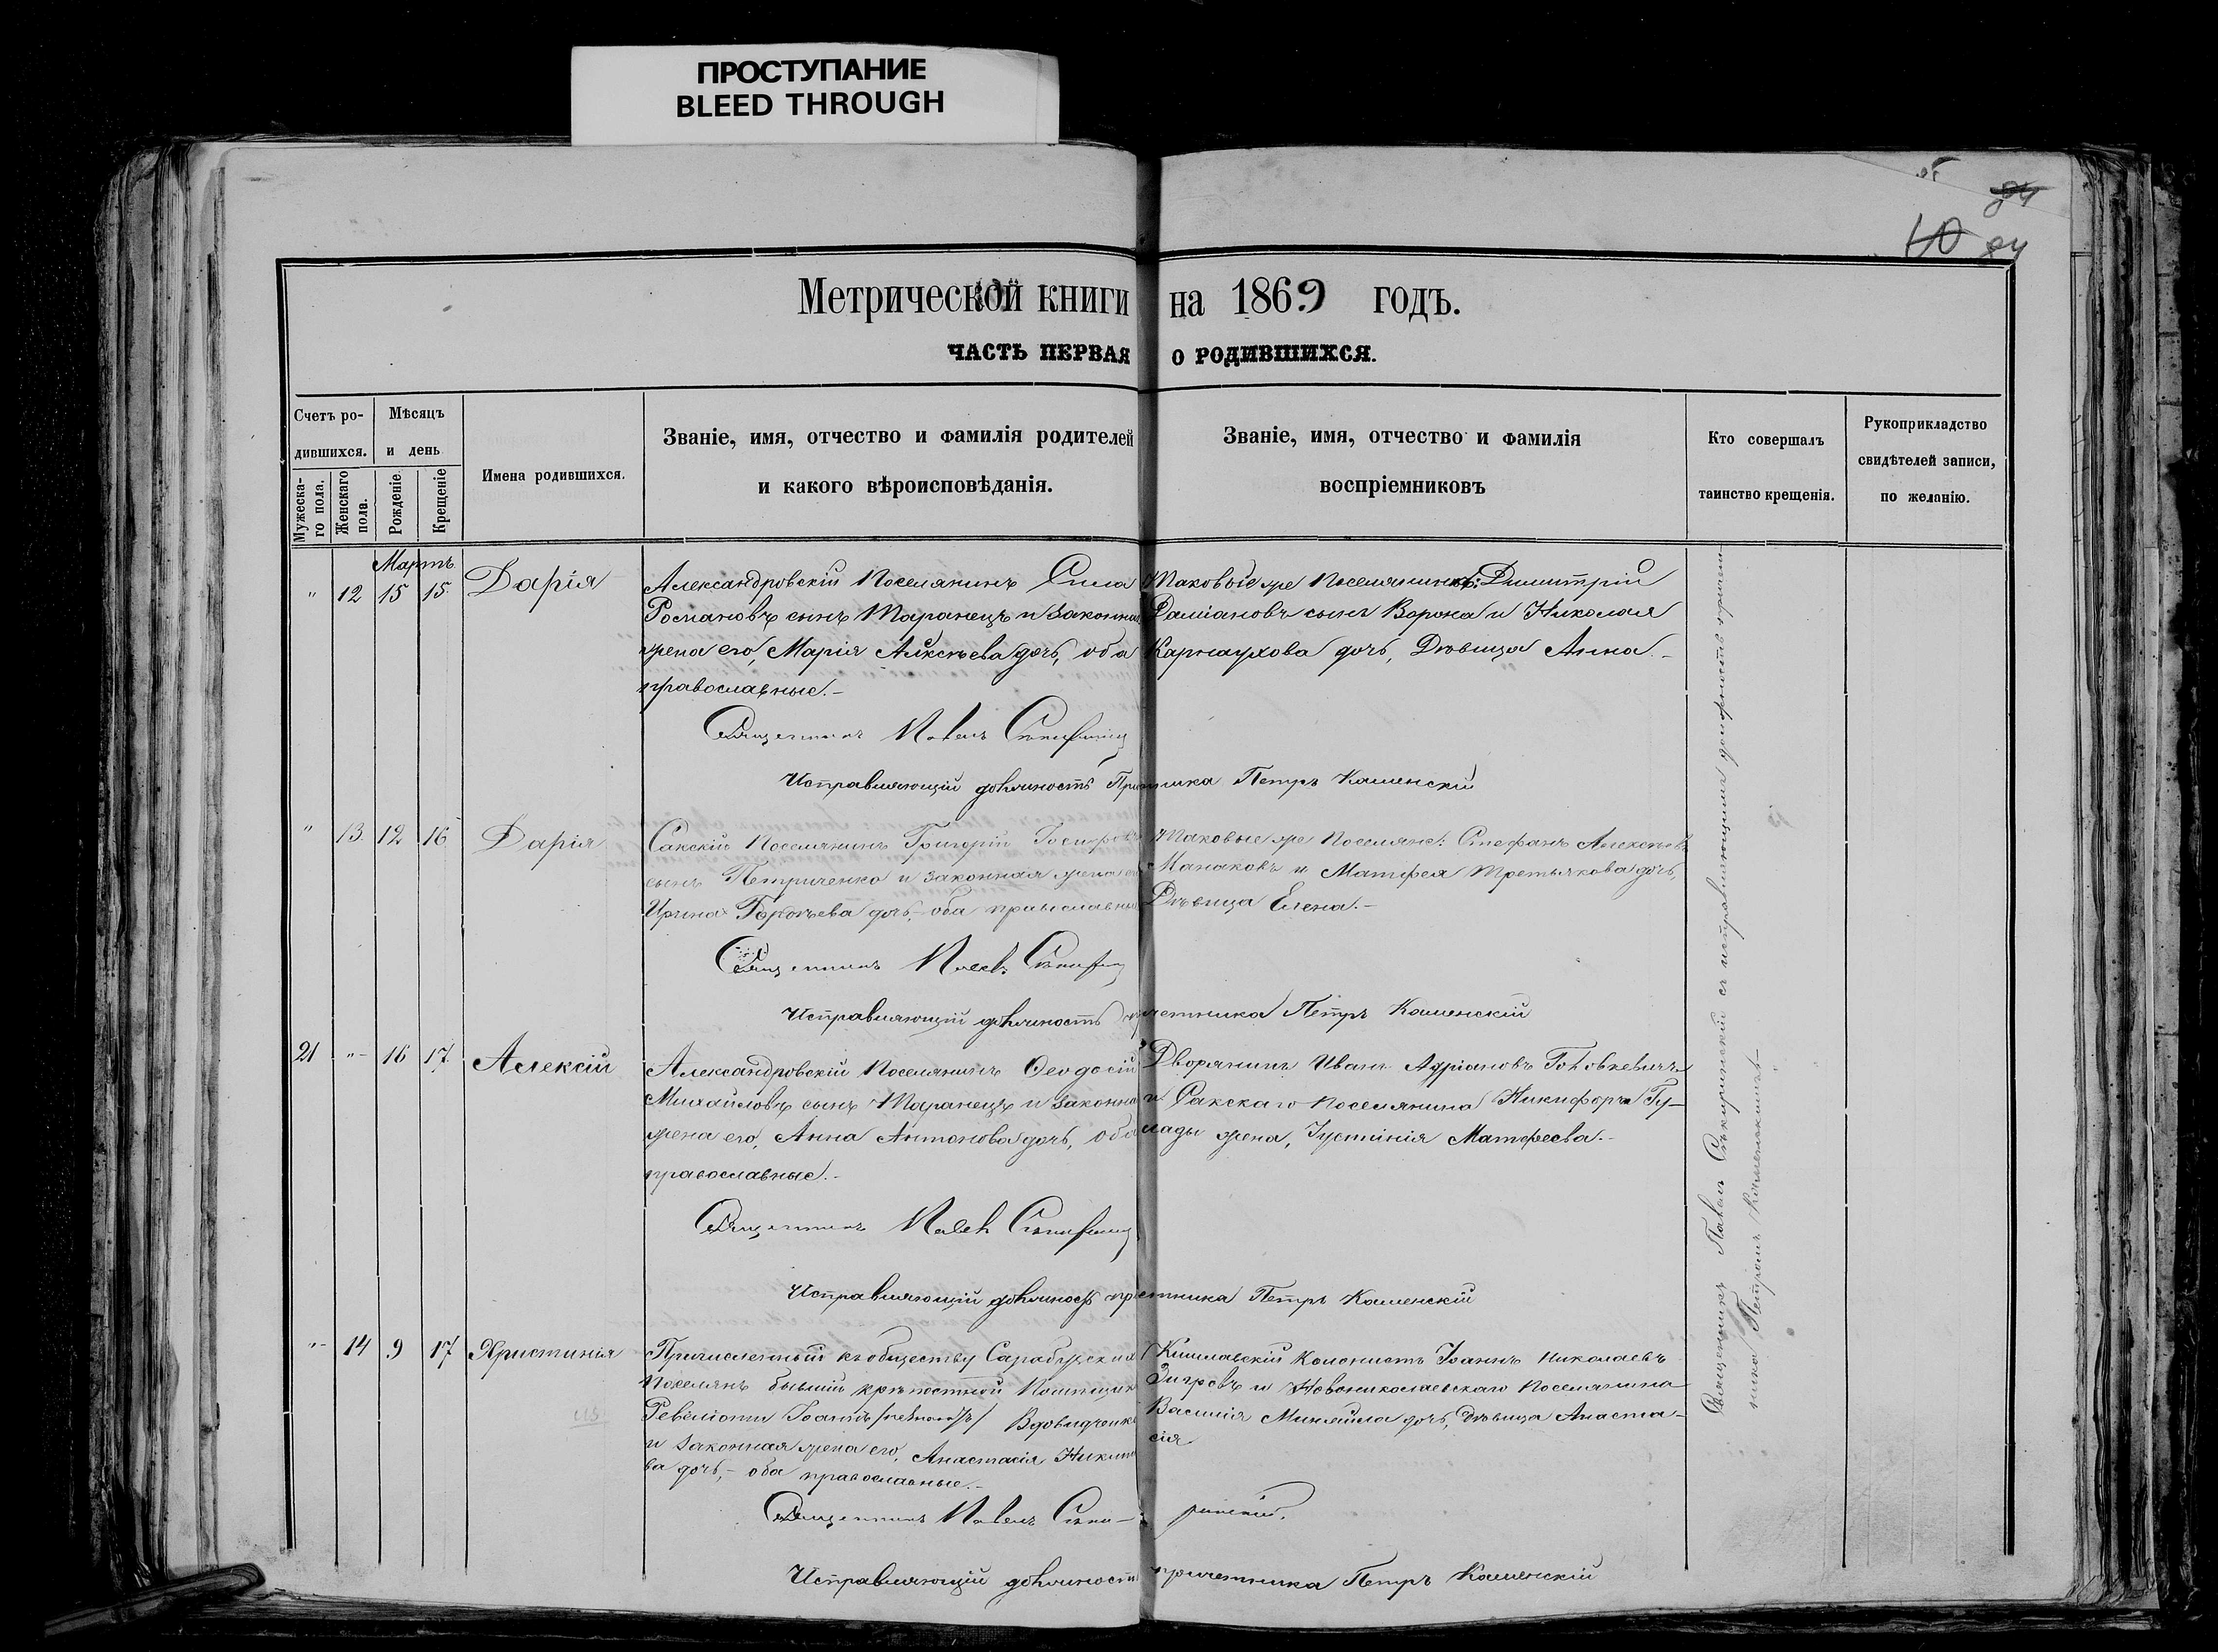 ПРОСТУПАНИЕ
BLEED THROUGH
84
10 84
Метрической книги на 1869 годъ.
ЧАСТЬ ПЕРВАЯ О РОДИВШИХСЯ.
Счетъ родившихся.
Мужеска-
го пола.
Женскаго
пола.
Мѣсяцъ
и день
Рожденіе.
Крещеніе
Имена родившихся.
Званіе, имя, отчество и фамилія родителей
и какого вѣроисповѣданія.
Званіе, имя, отчество и фамилія
воспріемниковъ
Кто совершалъ
таинство крещенія.
Рукоприкладство
свидѣтелей записи,
по желанію.
Мартъ
" 12 15 15. Дарія
Александровскій Поселянинъ Сила
Романовъ сынъ Таранецъ и законная
жена его, Марія Алексѣева дочь, оба
православные.-
Таковые же Поселяне: Димитрій
Даміановъ сынъ Ворона и Николая
Карнаухова дочь, Дѣвица Анна.-
Священникъ Павелъ
Исправляющій должность Причетника Петръ Каменскій
" 13 12 16 Дарія
Сакскій Поселянинъ Григорій
сынъ Петриченко и законная жена его
Ирина дочь,- оба православные
Таковые же Поселяне: Стефанъ Алексѣевъ
Манаковъ и Матфея Третьякова дочь,
Дѣвица Елена.-
Священникъ Павелъ
Исправляющій должность причетника Петръ Каменскій
21 "- 16 17 Алексій
Александровскій Поселянинъ Ѳеодосій
Михайловъ сынъ Таранецъ и законная
жена его, Анна Антонова дочь, оба
православные.-
Дворянинъ Иванъ Адріановъ
и Сакскаго Поселянина Никифора Гу-
лады жена, Іустинія Матфеева.-
Священникъ Павелъ
Исправляющій должность причетника Петръ Каменскій
"- 14 9 17 Христинія
Причисленный къ обществу Сарабузскихъ
Поселянъ бывшій крѣпостной Помѣщика
Ревеліоти Іоаннъ Вдовиченко
и законная жена его, Анастасія Никито-
ва дочь,- оба православные.-
Кишлавскій Колонистъ Іоаннъ Николаевъ
и Новониколаевскаго Поселянина
Василія Миняйла дочь, Дѣвица Анаста-
сія
Священникъ Павелъ
Исправляющій должность причетника Петръ Каменскій
Священникъ Павелъ съ исправляющимъ должность причет-
ника Петромъ Каменскимъ.-